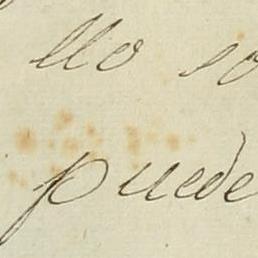 llo so
puede